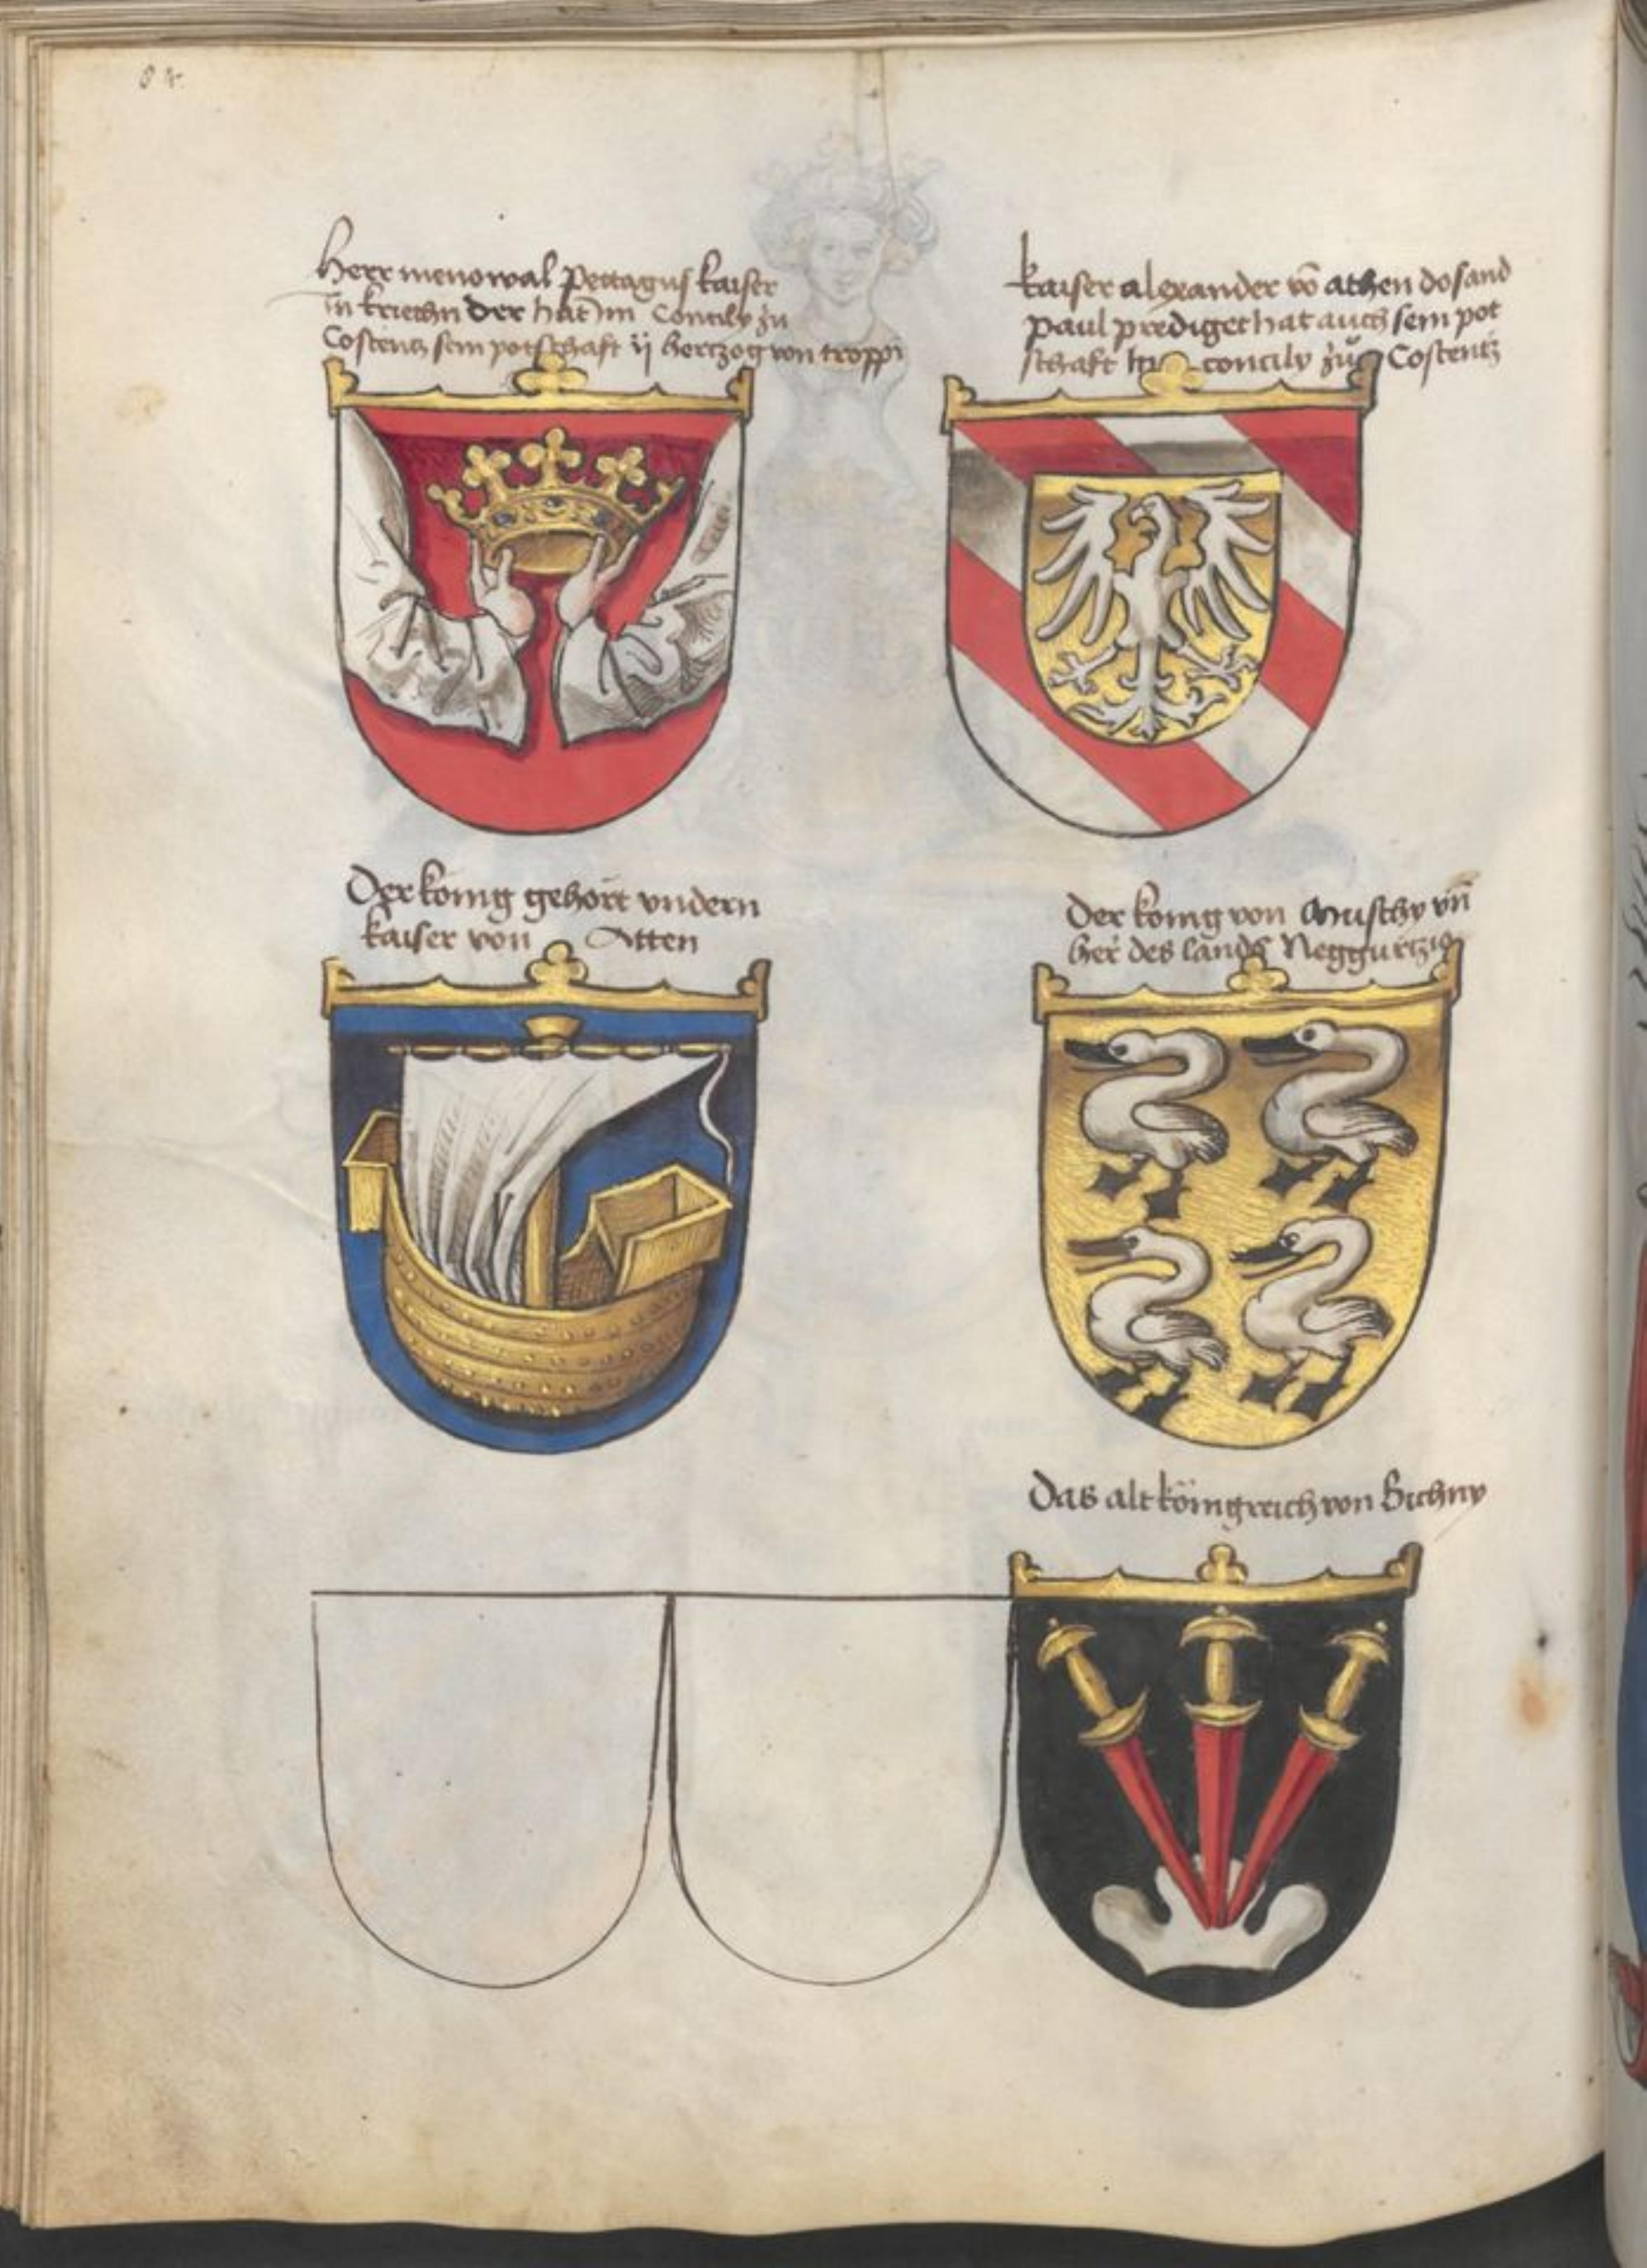 Herr menowal Pettagus kaiser
in kriechn der hat im Concily zu
Costentz sein potschaft ij hertzog von troppi
kaiser alexander vō athen do sand
paul prediget hat auch sein pot
schaft im concily zu Costentz
Der konig gehört vndern
kaiser von Atten
Der konig von Muschy vn̄
her des lands Neggurtzig
Das alt königreich von Sichny